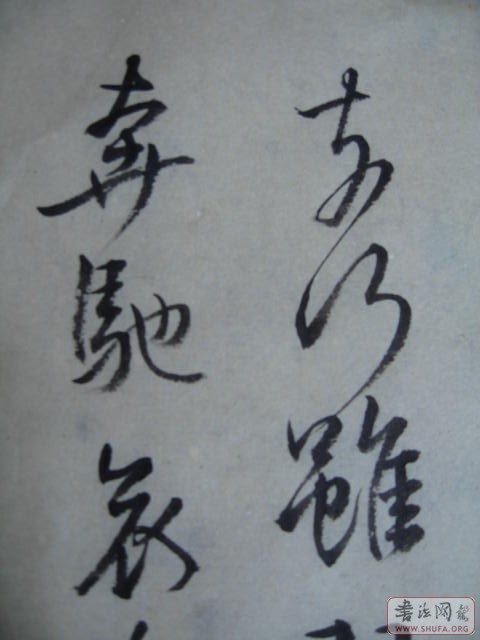 奈何雖
奔馳哀
書法网
WWW.SHUFA.ORG